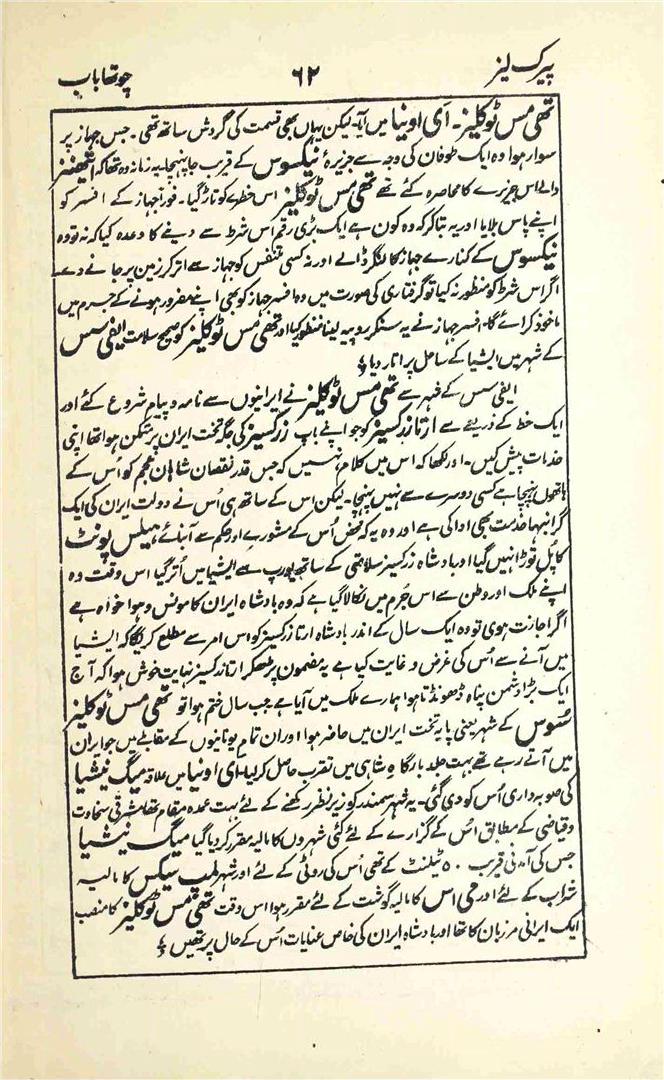 پیرک لیز ۶۲ چوتھا باب
تھی مس ٹوکلیز۔ آی اونیا میں آیا۔ لیکن یہاں بھی قسمت کی گردش ساتھ تھی۔ جس جہاز پر
سوار ہوا وہ ایک طوفان کی وجہ سے جزیرۂ نیکسوس کے قریب جا پہنچا۔ یہ زمانہ وہ تھا کہ ایتھنز
والے اس جزیرے کا محاصرہ کئے تھے تھی مس ٹوکلیز اس خطرے کو تاڑ گیا۔ فوراً جہاز کے افسر کو
اپنے پاس بلایا اور یہ بتا کر کہ وہ کون ہے ایک بڑی رقم اس شرط سے دینے کا وعدہ کیا کہ نہ تو وہ
نیکسوس کے کنارے جہاز کا لنگر ڈالے اور نہ کسی متنفس کو جہاز سے اتر کر زمین پر جانے دے
اگر اس شرط کو منظور نہ کیا تو گرفتاری کی صورت میں وہ افسر جہاز کو بھی اپنے مفرور ہونے کے جرم میں
ماخوذ کرائے گا۔ افسر جہاز نے یہ سنکر روپیہ لینا منظور کیا اور تھی مس ٹوکلیز کو صحیح سلامت ایفی سس
کے شہر میں ایشیا کے ساحل پر اتار دیا
ایفی سس کے شہر سے تھی مس ٹوکلیز نے ایرانیوں سے نامہ و پیام شروع کئے اور
ایک خط کے ذریعے سے ارتازرکسیز کو جو اپنے باپ زرکسیز کی جگہ تخت ایران پر متمکن ہوا تھا اپنی
خدمات پیش کیں۔ اور لکھا کہ اس میں کلام نہیں کہ جس قدر نقصان شاہان عجم کو اُس کے
ہاتھوں پہنچا ہے کسی دوسرے سے نہیں پہنچا۔ لیکن اس کے ساتھ ہی اُس نے دولت ایران کی ایک
گرانبہا خدمت بھی ادا کی ہے اور وہ یہ کہ محض اُس کے مشورے اور حکم سے آبنائے ہیلس پونٹ
کا پُل توڑا نہیں گیا اور بادشاہ زرکسیز سلامتی کے ساتھ یورپ سے ایشیا میں اُتر گیا اس وقت وہ
اپنے ملک اور وطن سے اس جُرم میں نکالا گیا ہے کہ وہ بادشاہ ایران کا مونس و ہوا خواہ ہے
اگر اجازت ہوی تو وہ ایک سال کے اندر بادشاہ ارتازرکسیز کو اس امر سے مطلع کریگا کہ ایشیا
میں آنے سے اُس کی غرض و غایت کیا ہے یہ مضمون پڑھکر ارتازرکسیز نہایت خوش ہوا کہ آج
ایک بڑا دشمن پناہ ڈھونڈتا ہوا ہمارے ملک میں آیا ہے جب سال ختم ہوا تو تھی مس ٹوکلیز
سُوس کے شہر یعنی پایہ تخت ایران میں حاضر ہوا اور ان تمام یونانیوں کے مقابلے میں جو ایران
میں آتے رہے تھے بہت جلد بارگاہ شاہی میں تقرب حاصل کر لیا۔ ای اونیا میں علاقہ میگ نیشیا
کی صوبہ داری اُس کو دی گئی۔ یہ شہر سمندر کو زیر نظر رکھنے کے لئے بہت عمدہ مقام تھا مشرقی سخاوت
و فیاضی کے مطابق اُس کے گزارے کے لئے کئی شہروں کا مالیہ مقرر کر دیا گیا میگ نیشیا
جس کی آمدنی قریب ۵۰ ٹیلنٹ کے تھی اُس کی روٹی کے لئے اور شہر لمپ سیکس کا مالیہ
شراب کے لئے اور می اس کا مالیہ گوشت کے لئے مقرر ہوا اس وقت تھی مس ٹوکلیز کا منصب
ایک ایرانی مرزبان کا تھا اور بادشاہ ایران کی خاص عنایات اُس کے حال پر تھیں